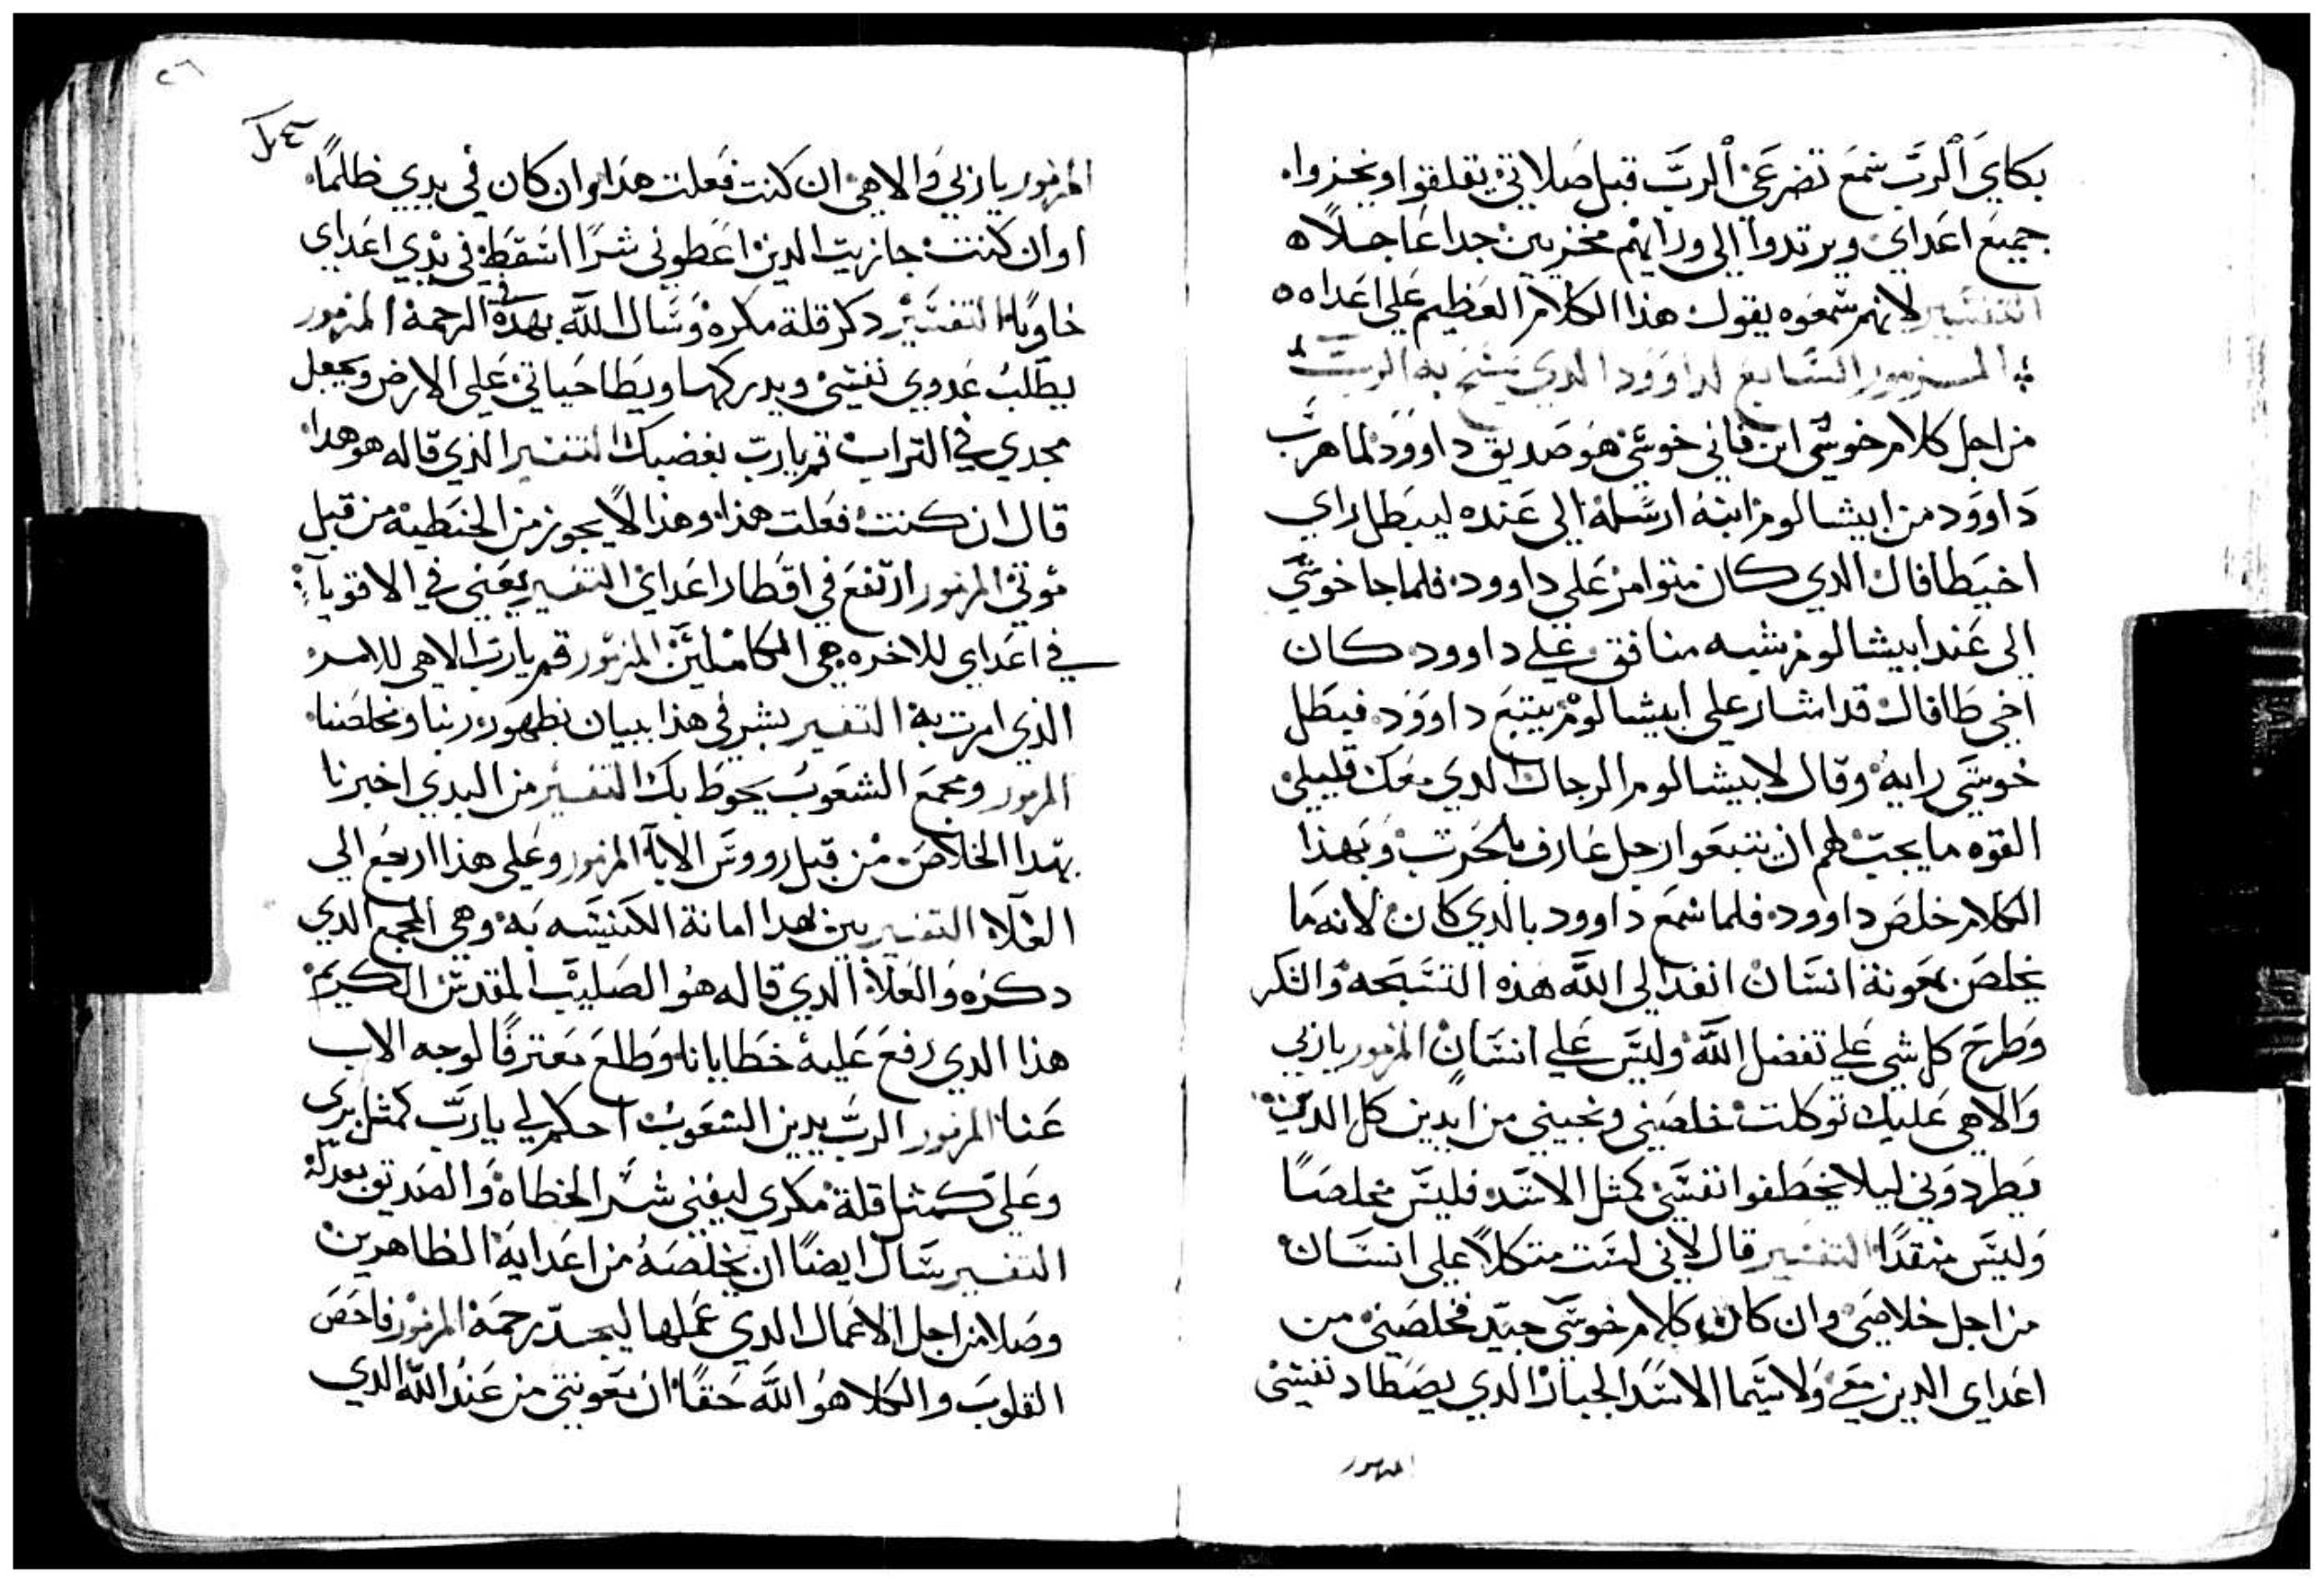 بكاي الرب سمع تضرعي الرب قبل صلاتي يقلقوا ويخزوا
جميع اعداي ويرتدوا الي ورايهم مخزيين جدا عاجلا
التفسير لانهم سمعوه يقول هذا الكلام العظيم علي اعداه
المزمور السابع لداوود الدي يسبح به الرب
من اجل كلام خوسي ابن ماني خوسي هو صديق داوود لما هرب
داوود من ابيشالوم ابنه ارسله الي عنده ليبطل راي
اخيطافال الدي كان متوامر علي داوود فلما جا خوسي
الي عند ابيشالوم شبه منافق علي داوود كان
اخي طافال قد اشار علي ابيشالوم يتبع داوود فبطل
خوسي رايه وقال لابيشالوم الرجال الدي معك قليلي
القوه ما يجب لهم ان يتبعوا رجل عارف بالحرب وبهذا
الكلام خلص داوود فلما سمع داوود بالدي كان لانه ما
يخلص بمعونة انسان انفد الي الله هذه التسبحه والشكر
وطرح كل شي علي تفضل الله وليس علي انسان المزمور ياربي
والاهي عليك توكلت خلصني ونجيني من ايدين كل الدين
يطردوني ليلا يخطفوا نفسي كمثل الاسد فليس مخلصا
وليس منقدا التفسير قال لاني لست متكلا علي انسان
من اجل خلاصي وان كان كلام خوسي جيد فخلصني من
اعداي الدين معي ولاسيما الاسد الجبار الدي يصطاد نفسي
المزمور
٢٦
المزمور ياربي والاهي ان كنت فعلت هذا وان كان في يدي ظلما
او ان كنت جازيت الدين اعطوني شرا اسقط في يدي اعداي
خاويا التفسير دكر قلة مكره وسال الله بهده الرحمة المزمور
يطلب عدوي نفسي ويدركها ويطا حياتي علي الارض ويجعل
مجدي في التراب قم يارب بغضبك التفسير الذي قاله هو هدا
قال ان كنت فعلت هذا وهذا لا يجوز من الخطيه من قبل
موتي المزمور ارتفع في اقطار اعداي التفسير يعني في الاقويا
في اعداي للاخره هي الكاملين المزمور قم يارب الاهي للامر
الذي امرت به التفسير بشر في هذا ببيان بظهور ربنا ومخلصنا
المزمور ومجمع الشعوب يحوط بك التفسير من البدي اخبرنا
بهدا الخلاص من قبل رووس الابا المزمور وعلي هذا ارجع الي
العلا التفسير بين بهدا امانة الكنيسه به وهي المجمع الدي
دكره والعلا الدي قاله هو الصليب المقدس الكريم
هذا الدي رفع عليه خطايانا وطلع معترفا لوجه الاب
عنا المزمور الرب يدين الشعوب احكم لي يارب كمثل بري
وعلي كمثل قلة مكري ليفني شر الخطاه والصديق بعدله
التفسير سال ايضا ان يخلصه من اعدايه الظاهرين
وصلا من اجل الاعمال الدي عملها ليجد رحمة المزمور فاحص
القلوب والكلا هو الله حقا ان معونتي من عند الله الدي